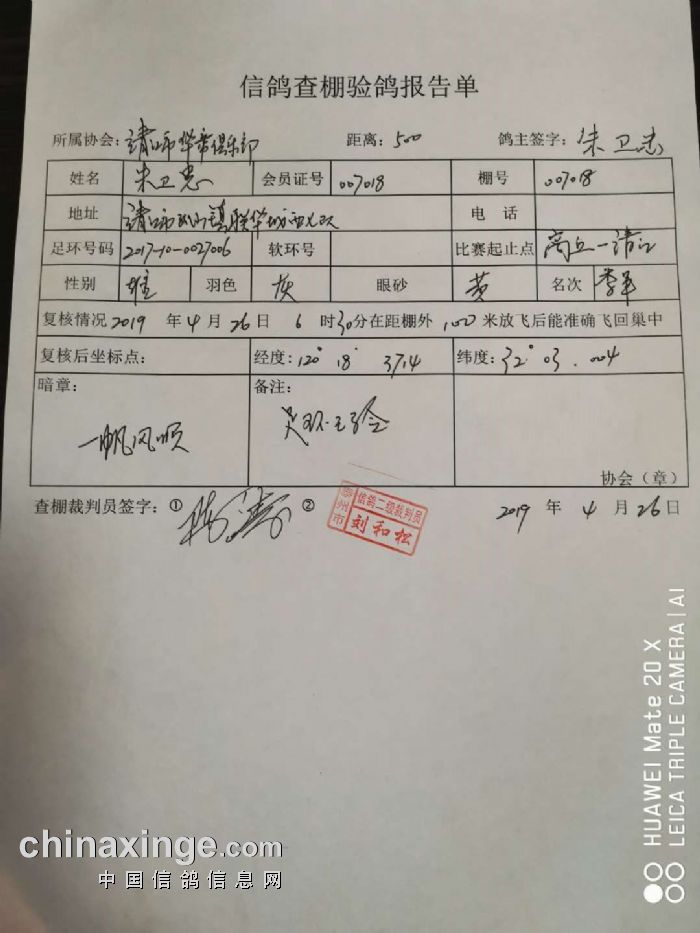 信鸽查棚验鸽报告单
所属协会: 靖江市华帝俱乐部 距离: 500 鸽主签字: 朱卫忠
姓名 朱卫忠 会员证号 007018 棚号 007018
地址 靖江市 镇联华 电 话
足环号码 2017-10-0027006 软环号 比赛起止点 商丘—靖江
性别 雄 羽色 灰 眼砂 黄 名次 季军
复核情况 2019 年 4 月 26 日 6 时30分在距棚外 1500 米放飞后能准确飞回巢中
复核后坐标点: 经度: 120° 18' 3714 纬度: 32° 03 . 004
暗章: 备注:
一帆风顺 足环已验
协会（章）
查棚裁判员签字: ① ②
泰州市 信鸽二级裁判员 刘和松
2019 年 4 月 26 日
HUAWEI Mate 20 X
LEICA TRIPLE CAMERA | AI
chinaxinge.com
中国信鸽信息网